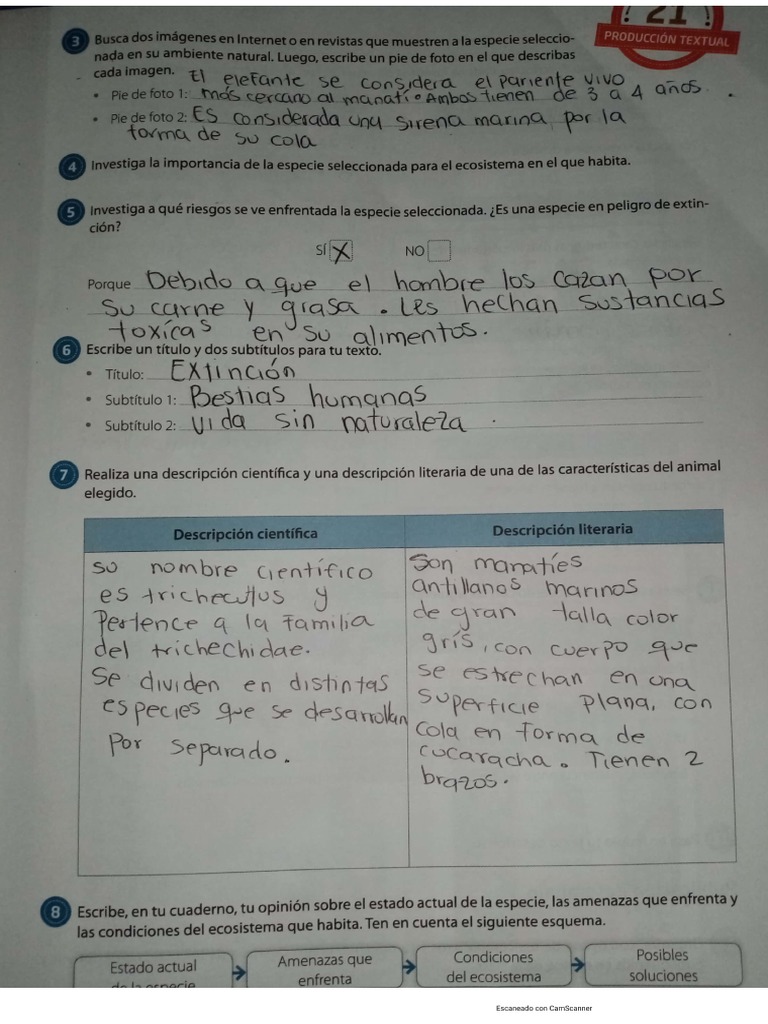 21
PRODUCCIÓN TEXTUAL
3 Busca dos imágenes en Internet o en revistas que muestren a la especie seleccio-
nada en su ambiente natural. Luego, escribe un pie de foto en el que describas
cada imagen. El elefante se considera el pariente vivo
• Pie de foto 1: más cercano al manatí. Ambos tienen de 3 a 4 años.
• Pie de foto 2: Es considerada una sirena marina, por la
forma de su cola
4 Investiga la importancia de la especie seleccionada para el ecosistema en el que habita.
5 Investiga a qué riesgos se ve enfrentada la especie seleccionada. ¿Es una especie en peligro de extin-
ción?
SÍ X NO
Porque Debido a que el hombre los cazan por
su carne y grasa. Les hechan sustancias
toxícas en su alimentos.
6 Escribe un título y dos subtítulos para tu texto.
• Título: Extinción
• Subtítulo 1: Bestias humanas
• Subtítulo 2: vida sin naturaleza.
7 Realiza una descripción científica y una descripción literaria de una de las características del animal
elegido.
Descripción científica
su nombre científico
es trichecutus y
Pertence a la familia
del trichechidae.
Se dividen en distintas
especies que se desarrollan
por separado.
Descripción literaria
Son manatíes
antillanos marinos
de gran talla color
grís, con cuerpo que
se estrechan en una
superficie plana, con
cola en forma de
cucaracha. Tienen 2
brazos.
8 Escribe, en tu cuaderno, tu opinión sobre el estado actual de la especie, las amenazas que enfrenta y
las condiciones del ecosistema que habita. Ten en cuenta el siguiente esquema.
Estado actual
de la especie
Amenazas que
enfrenta
Condiciones
del ecosistema
Posibles
soluciones
Escaneado con CamScanner